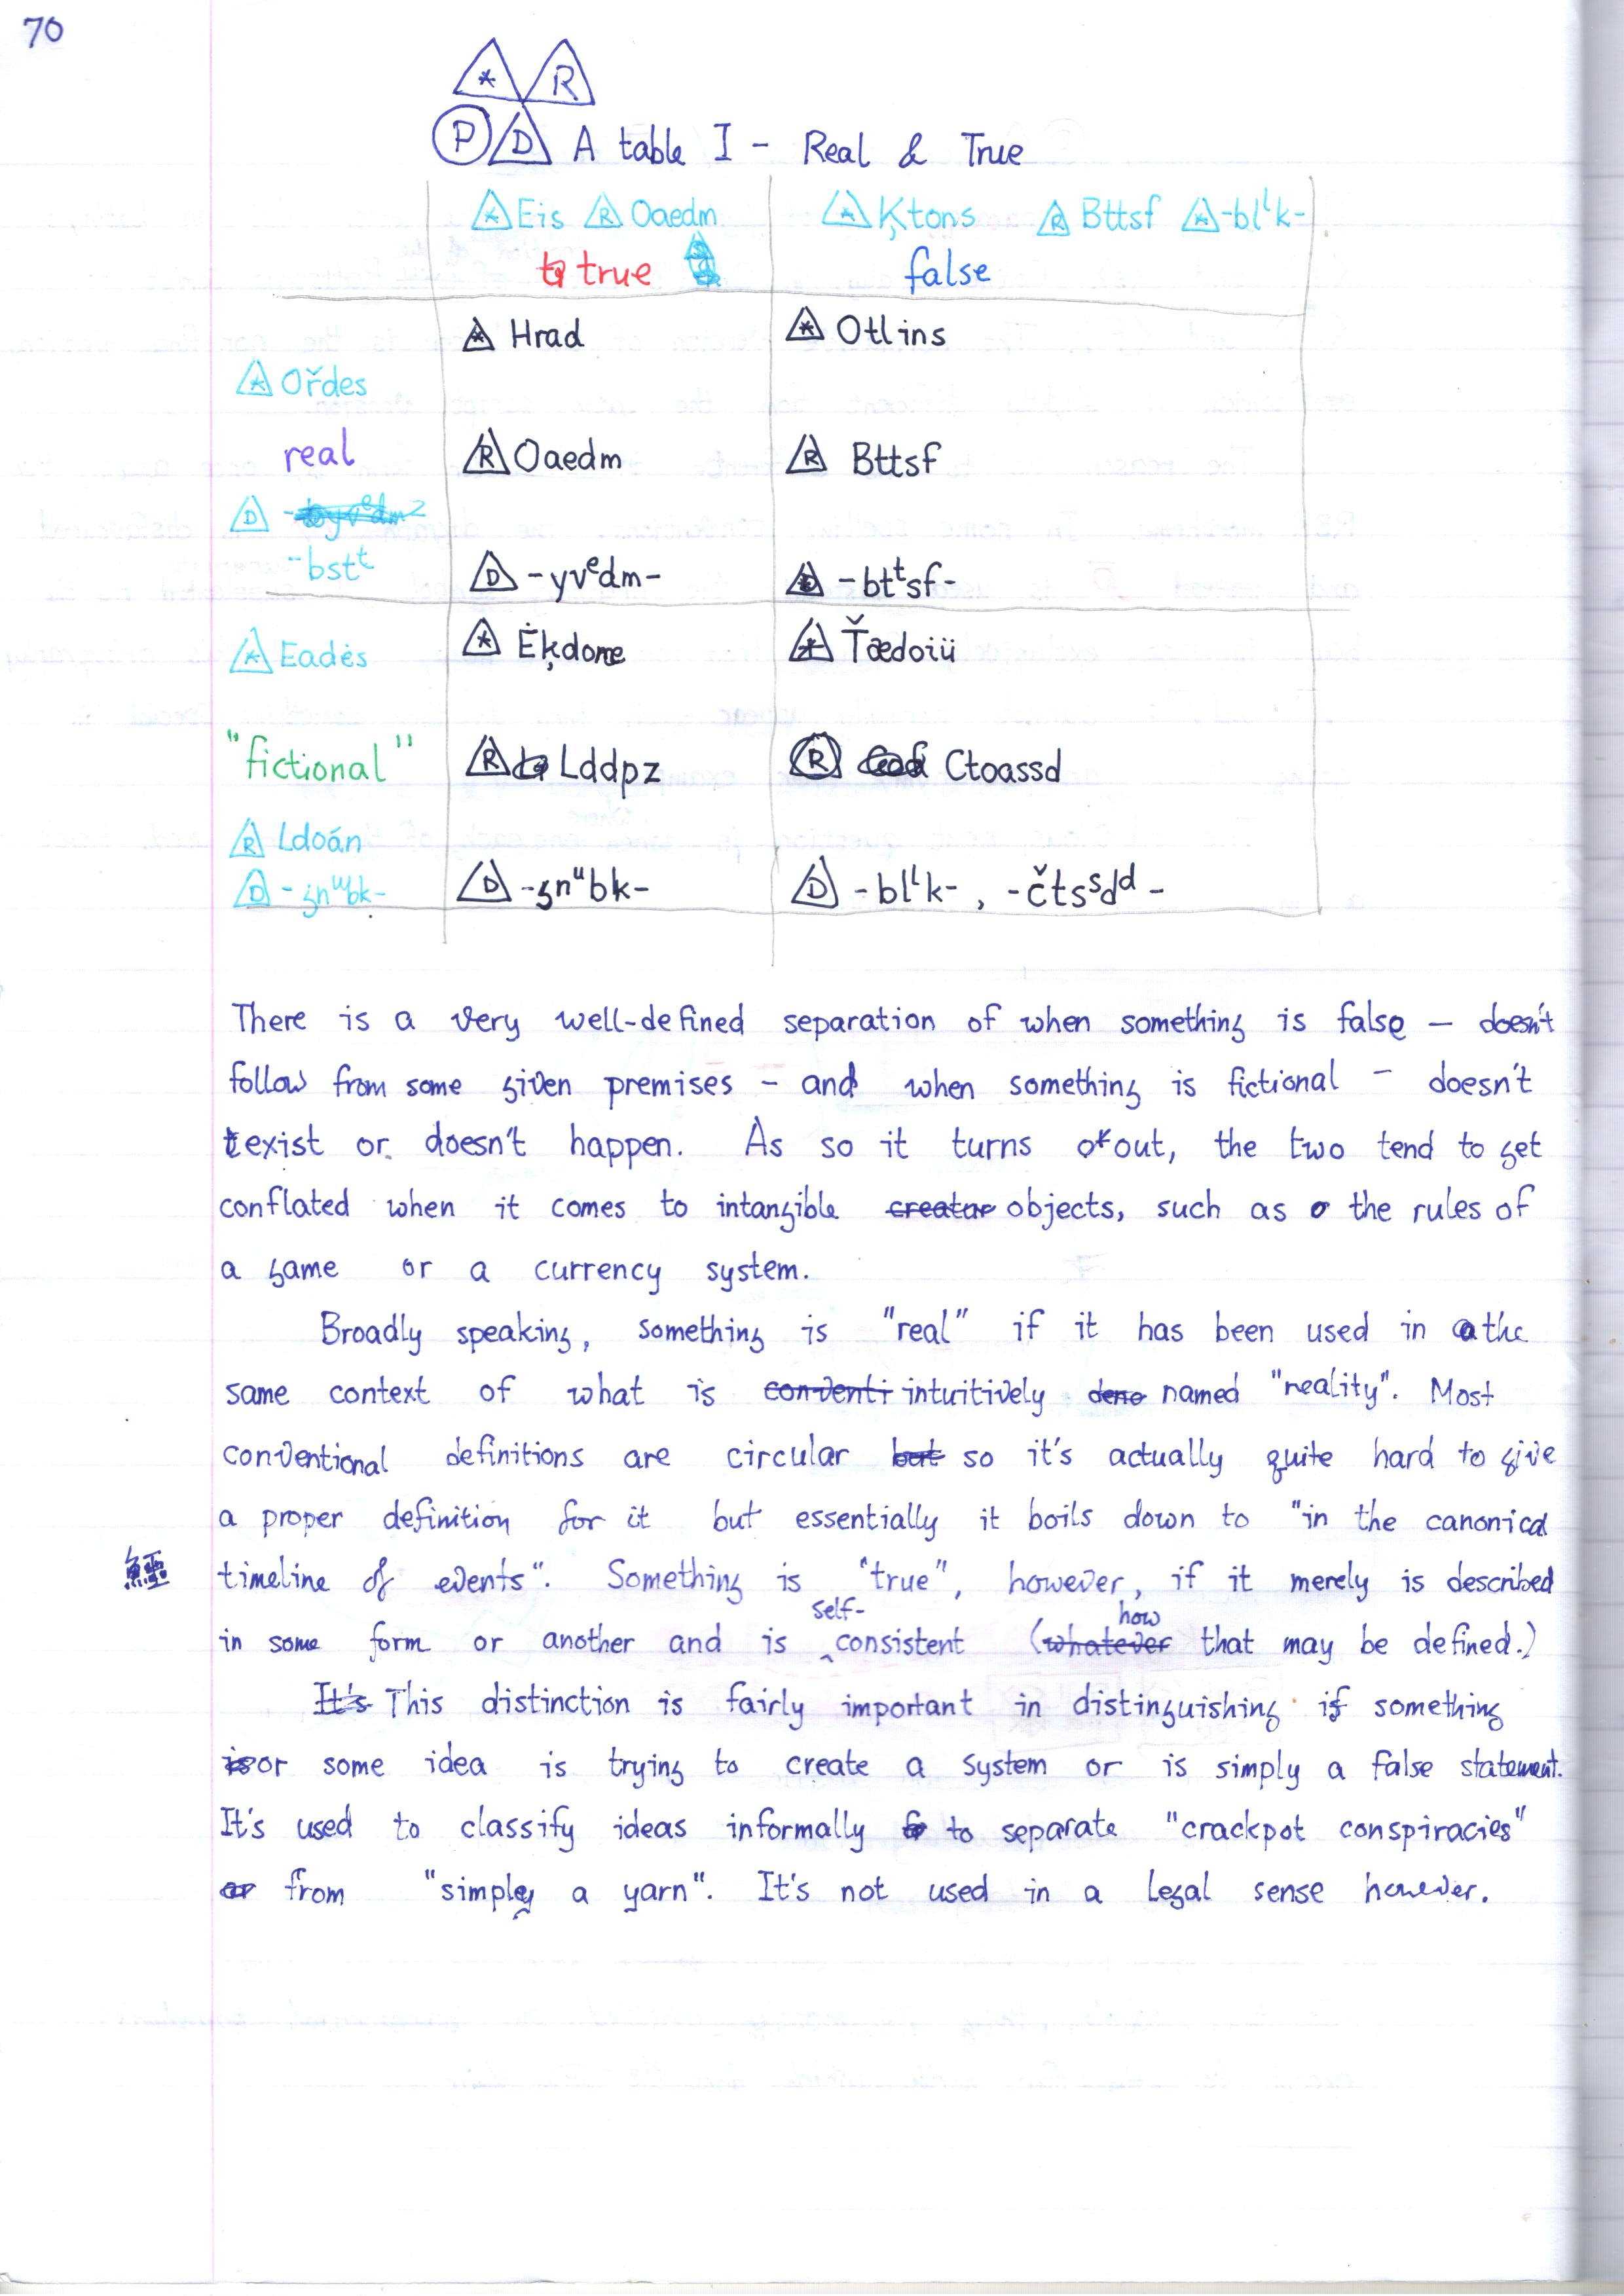 70
* R
P D A table I - Real & True
* Eis R Oaedm * Ķtons R Bttsf * -blˡk-
true false
* Hrad * Otlins
* Ořdes
real R Oaedm R Bttsf
D -byvᵉdm-
-bstᵗ D -yvᵉdm- D -btᵗsf-
* Eadės * Ėķdome * Ťædoiü
"fictional" R Lddpz R Ctoassd
R Ldoán
D -ʒnᵘbk- D -ʒnᵘbk- D -blˡk-, -čtsˢdᵈ-
There is a very well-defined separation of when something is false — doesn't
follow from some given premises - and when something is fictional - doesn't
exist or doesn't happen. As so it turns out, the two tend to get
conflated when it comes to intangible creatur objects, such as the rules of
a game or a currency system.
Broadly speaking, something is "real" if it has been used in the
same context of what is conventi intuitively deno named "reality". Most
conventional definitions are circular but so it's actually quite hard to give
a proper definition for it but essentially it boils down to "in the canonical
timeline of events". Something is "true", however, if it merely is described
in some form or another and is self-consistent (whatever how that may be defined.)
It's This distinction is fairly important in distinguishing if something
is or some idea is trying to create a system or is simply a false statement.
It's used to classify ideas informally to separate "crackpot conspiracies"
or from "simply a yarn". It's not used in a legal sense however.